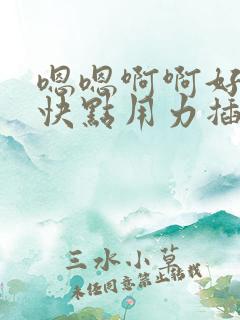 嗯嗯啊啊好
快點用力插
三水小草
未经同意禁止转载